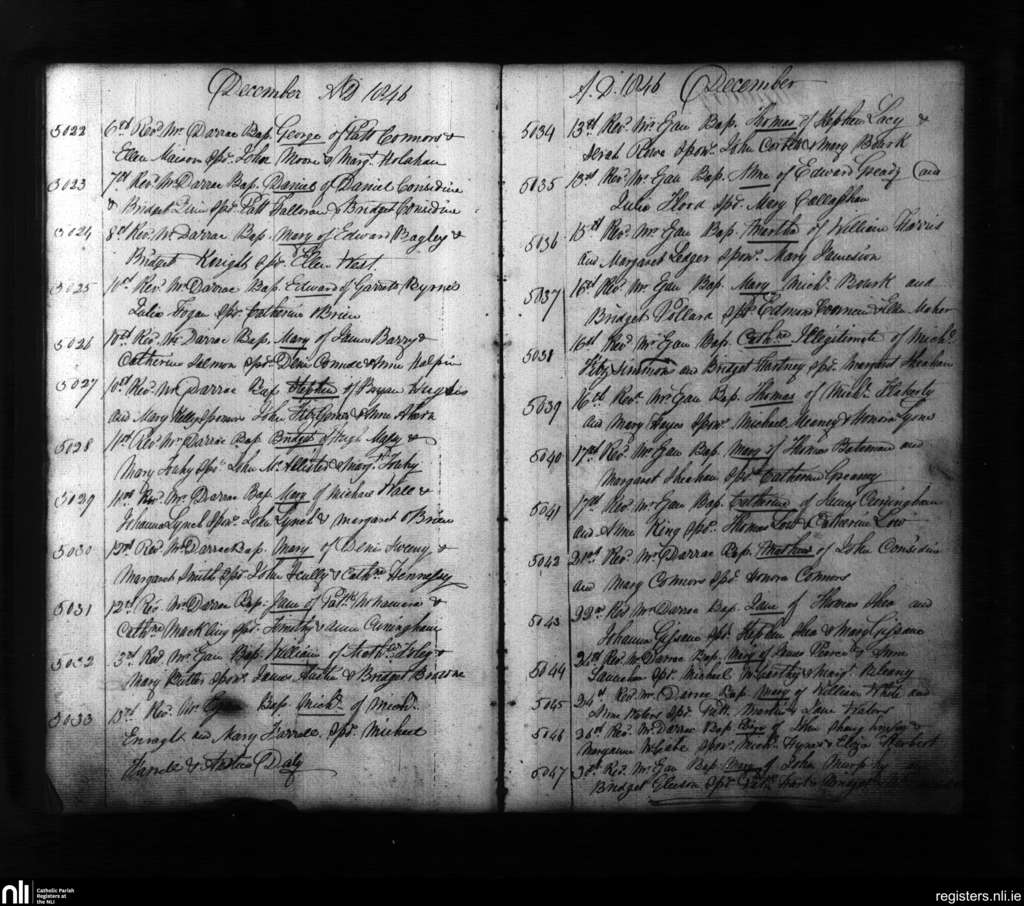 December AD 1846
5022 6th Revd. Mr Darrac Bap. George of Patt Connors &
Ellen Maison Spr. John Moore & Margt. Holahan
5023 7th Revd. Mr Darrac Bap. Daniel of Daniel Considine
& Bridget Spr. Patt Halloran & Bridget Considine
5024 8th Revd. Mr Darrac Bap. Mary of Edward Bagley &
Bridget Knight Spr. Ellen West.
5025 10th Revd. Mr Darrac Bap. Edward of Garrett Byrnes
Julia Hogan Spr. Catherine O'Brien
5026 10th Revd. Mr Darrac Bap. Mary of James Barry &
Catherine Salmon Spr. Denis & Anne Halpin
5027 10th Revd. Mr Darrac Bap. Stephen of Bryan Hughes
and Mary Kelly Sponsor John Fitzgerald & Anne Ahern
5028 11th Revd. Mr Darrac Bap. Bridget of Hugh &
Mary Fahy Spr. John McAllister & Margt. Fahy
5029 11th Revd. Mr. Darrac Bap. Mary of Michael Hall &
Johanna Lynch Spor. John Lynch & Margaret O'Brien
5030 12th Revd. Mr Darrac Bap. Mary of Denis Sweeny &
Margaret Smith Spr. John Scully & Cathne. Hennessy
5031 12th Rev. Mr Darrac Bap. Jane of Patk. McNamara &
Cathne Spr. Timothy & Anne Cuningham
5032 Revd. Mr Egan Bap. William of &
Mary Butler Spor. James Austin & Bridget Browne
5033 13th Rev. Mr Egan Bap. Michl. of Michl.
Enraght and Mary Farrell Spr. Michael
Farrell & Daly
A.D. 1846 December
5034 13th Revd. Mr. Egan Bap. Thomas of Stephen Lacy &
Sarah Spor. John & Mary Bourk
5035 13th Revd. Mr. Egan Bap. Anne of Edward Gready and
Julia Flood Spr. Mary Callaghan
5036 15th Revd. Mr. Egan Bap. Martha of William Harris
and Margaret Ledger Spor. Mary Jameson
5037 16th Revd. Mr Egan Bap. Mary Michl. Bourk and
Bridget Pollard Spr. Edmond Connen & Ellen Maher
5038 16th Revd Mr Egan Bap. Cathne Illegitimate of Michl.
Fitzsimmon and Bridget Hartney Spr. Margaret Sheehan
5039 16th Revd. Mr Egan Bap. Thomas of Michl. Flaherty
and Mary Hayes Spor. Michael Meaney & Honora
5040 17th Revd. Mr Egan Bap. Mary of Thomas Bateman and
Margaret Sheehan Spr. Catherine Greamy
5041 17th Revd Mr Egan Bap. Catherine of James Cuningham
and Anne King Spr. Thomas Low & Catherine Low
5042 21st Rev. Mr Darrac Bap. Mathew of John Considine
and Mary Connors Spr. Honora Connors
5043 22nd Revd Mr Darrac Bap. Jane of Thomas Shea and
Johanna Spr. Stephen Shea & Mary
5044 24th Rev. Mr Darrac Bap. Mary of James Pearce & Anne
Spr. Michael McCarthy & Margt.
5045 24th Revd Mr Darrac Bap. Mary of William White and
Anne Waters Spr. Patk. Martin & Jane Waters
5046 26th Rev. Mr Darrac Bap. of John &
Margaret McCabe Spor. Michl. Hynes & Eliza Herbert
5047 30th Revd. Mr Egan Bap. Mary of John Murphy
Bridget Gleeson Spr. Patk. Hart & Bridget
nli
Catholic Parish
Registers at
the NLI
registers.nli.ie